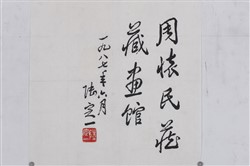 周怀民藏
藏画馆
一九八七年六月
陆定一